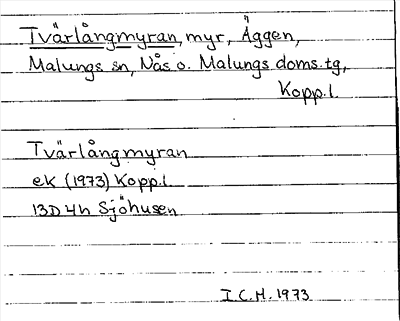 Tvärlångmyran, myr, Äggen,
Malungs sn, Nås o. Malungs doms.tg,
Kopp.l.
Tvärlångmyran
ek (1973) Kopp.l
13D 4h Sjöhusen
I.C.H. 1973